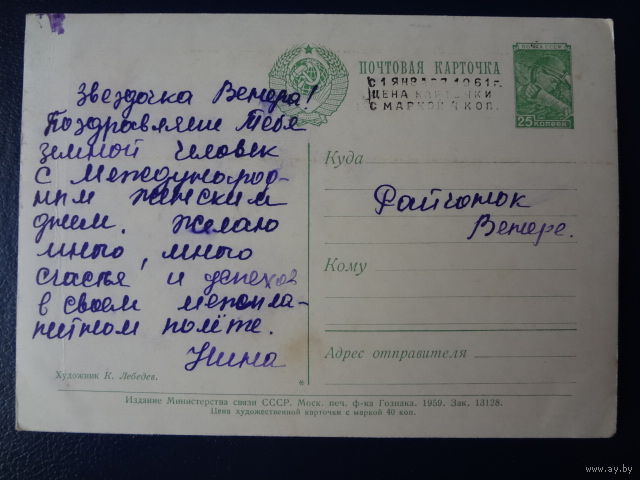 ПОЧТОВАЯ КАРТОЧКА
С 1 ЯНВАРЯ 1961 г.
ЦЕНА КАРТОЧКИ
С МАРКОЙ 4 КОП.
ПОЧТА СССР
25 КОПЕЕК
Звездочка Венера!
Поздравляю Тебя
земной человек
с Международ-
ным женским
днем. Желаю
много, много
счастья и успехов
в своем межпла-
нитном полёте.
Нина
Куда
Райчонок
Венере.
Кому
Адрес отправителя
Художник К. Лебедев.
Издание Министерства связи СССР. Моск. печ. ф-ка Гознака. 1959. Зак. 13128.
Цена художественной карточки с маркой 40 коп.
www.ay.by